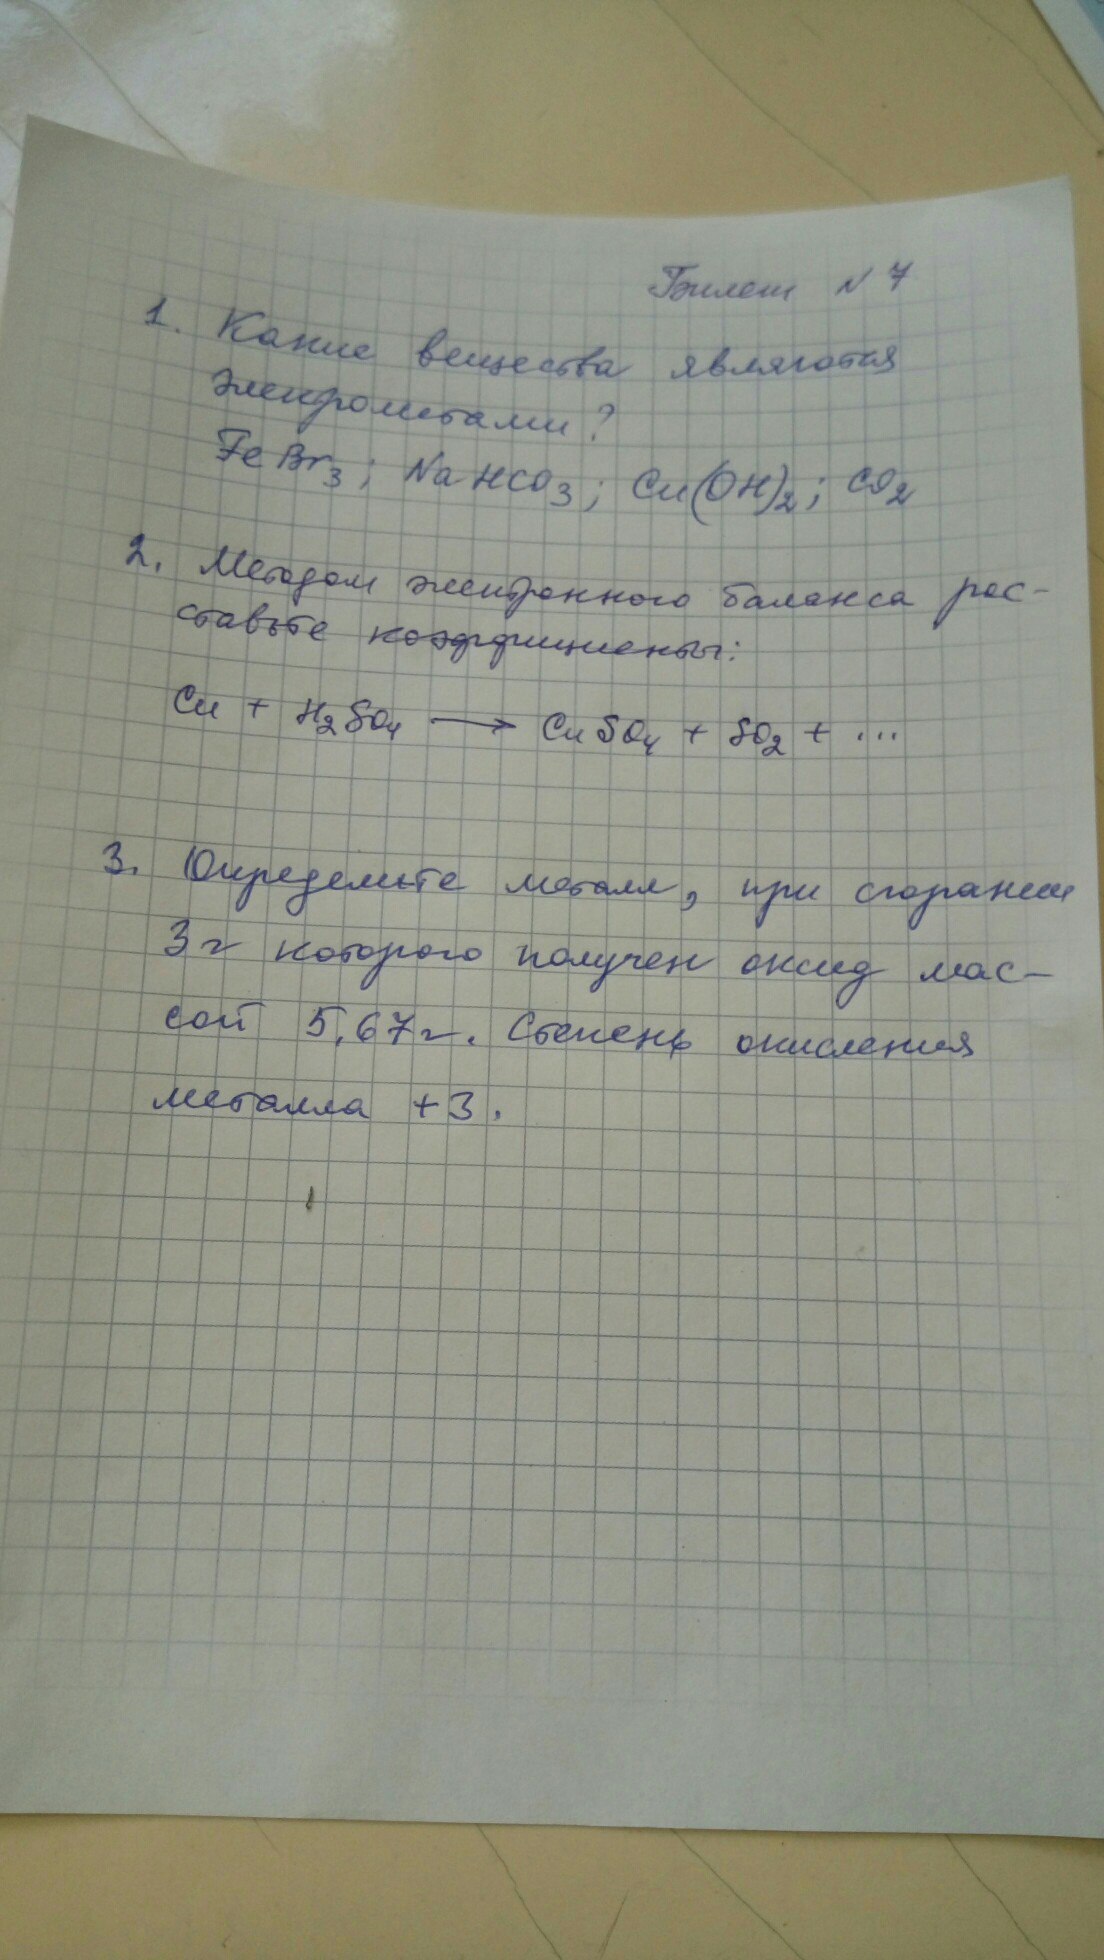 Билет N 7
1. Какие вещества являются
электролитами?
FeBr3; NaHCO3; Cu(OH)2; CO2
2. Методом электронного баланса рас-
ставьте коэффициенты:
Cu + H2SO4 → CuSO4 + SO2 + ...
3. Определите металл, при сгорании
3г которого получен оксид мас-
сой 5,67г. Степень окисления
металла +3.